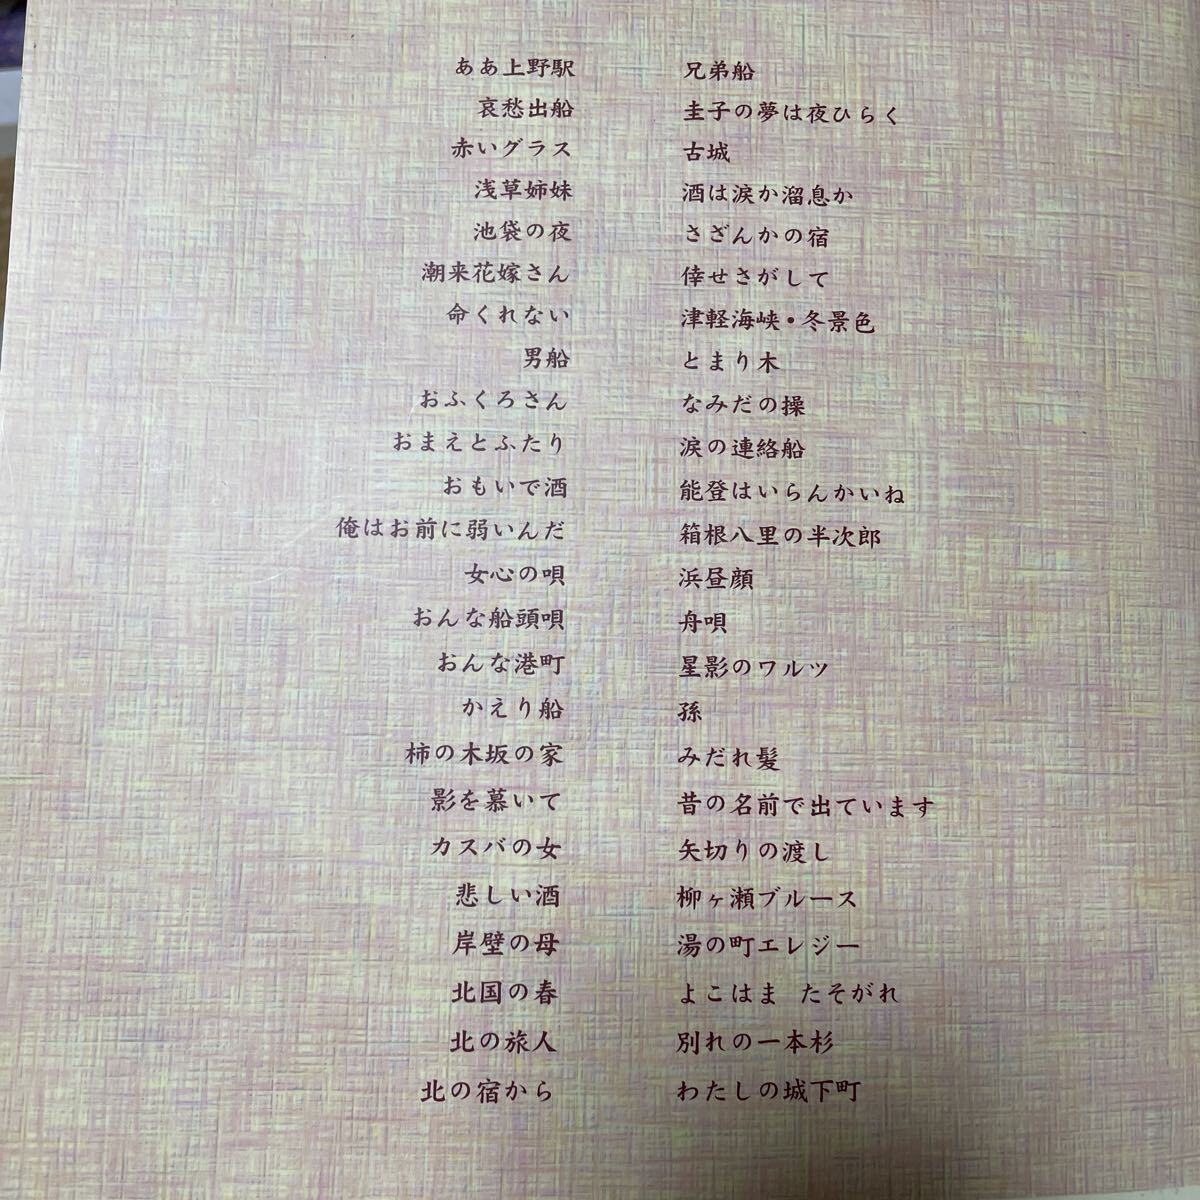 ああ上野駅
哀愁出船
赤いグラス
浅草姉妹
池袋の夜
潮来花嫁さん
命くれない
男船
おふくろさん
おまえとふたり
おもいで酒
俺はお前に弱いんだ
女心の唄
おんな船頭唄
おんな港町
かえり船
柿の木坂の家
影を慕いて
カスバの女
悲しい酒
岸壁の母
北国の春
北の旅人
北の宿から
兄弟船
圭子の夢は夜ひらく
古城
酒は涙か溜息か
さざんかの宿
倖せさがして
津軽海峡・冬景色
とまり木
なみだの操
涙の連絡船
能登はいらんかいね
箱根八里の半次郎
浜昼顔
舟唄
星影のワルツ
孫
みだれ髪
昔の名前で出ています
矢切りの渡し
柳ヶ瀬ブルース
湯の町エレジー
よこはま たそがれ
別れの一本杉
わたしの城下町